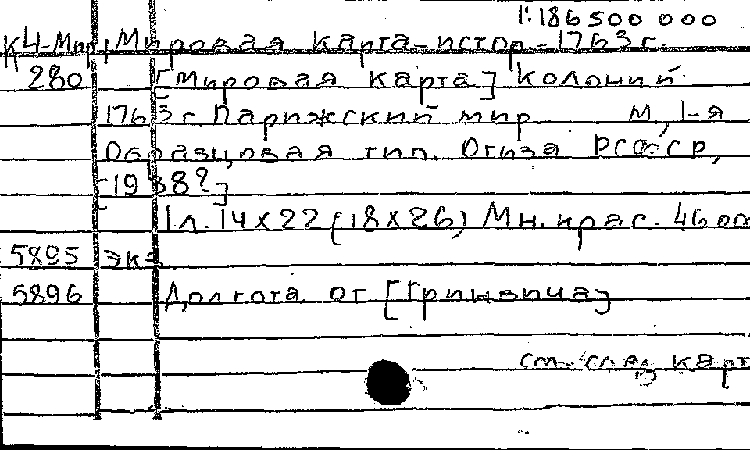 1:186500 000
К4-Мир Мировая карта-истор-1763г.
280 [Мировая карта] колоний
1763 г. Парижский мир М, 1-я
Образцовая тип. Огиза РСФСР,
[1938?]
1л. 14х22 (18х26) Мн. крас. 4600
5895 экз
5896 Долгота от [Гринвича]
см. след карт